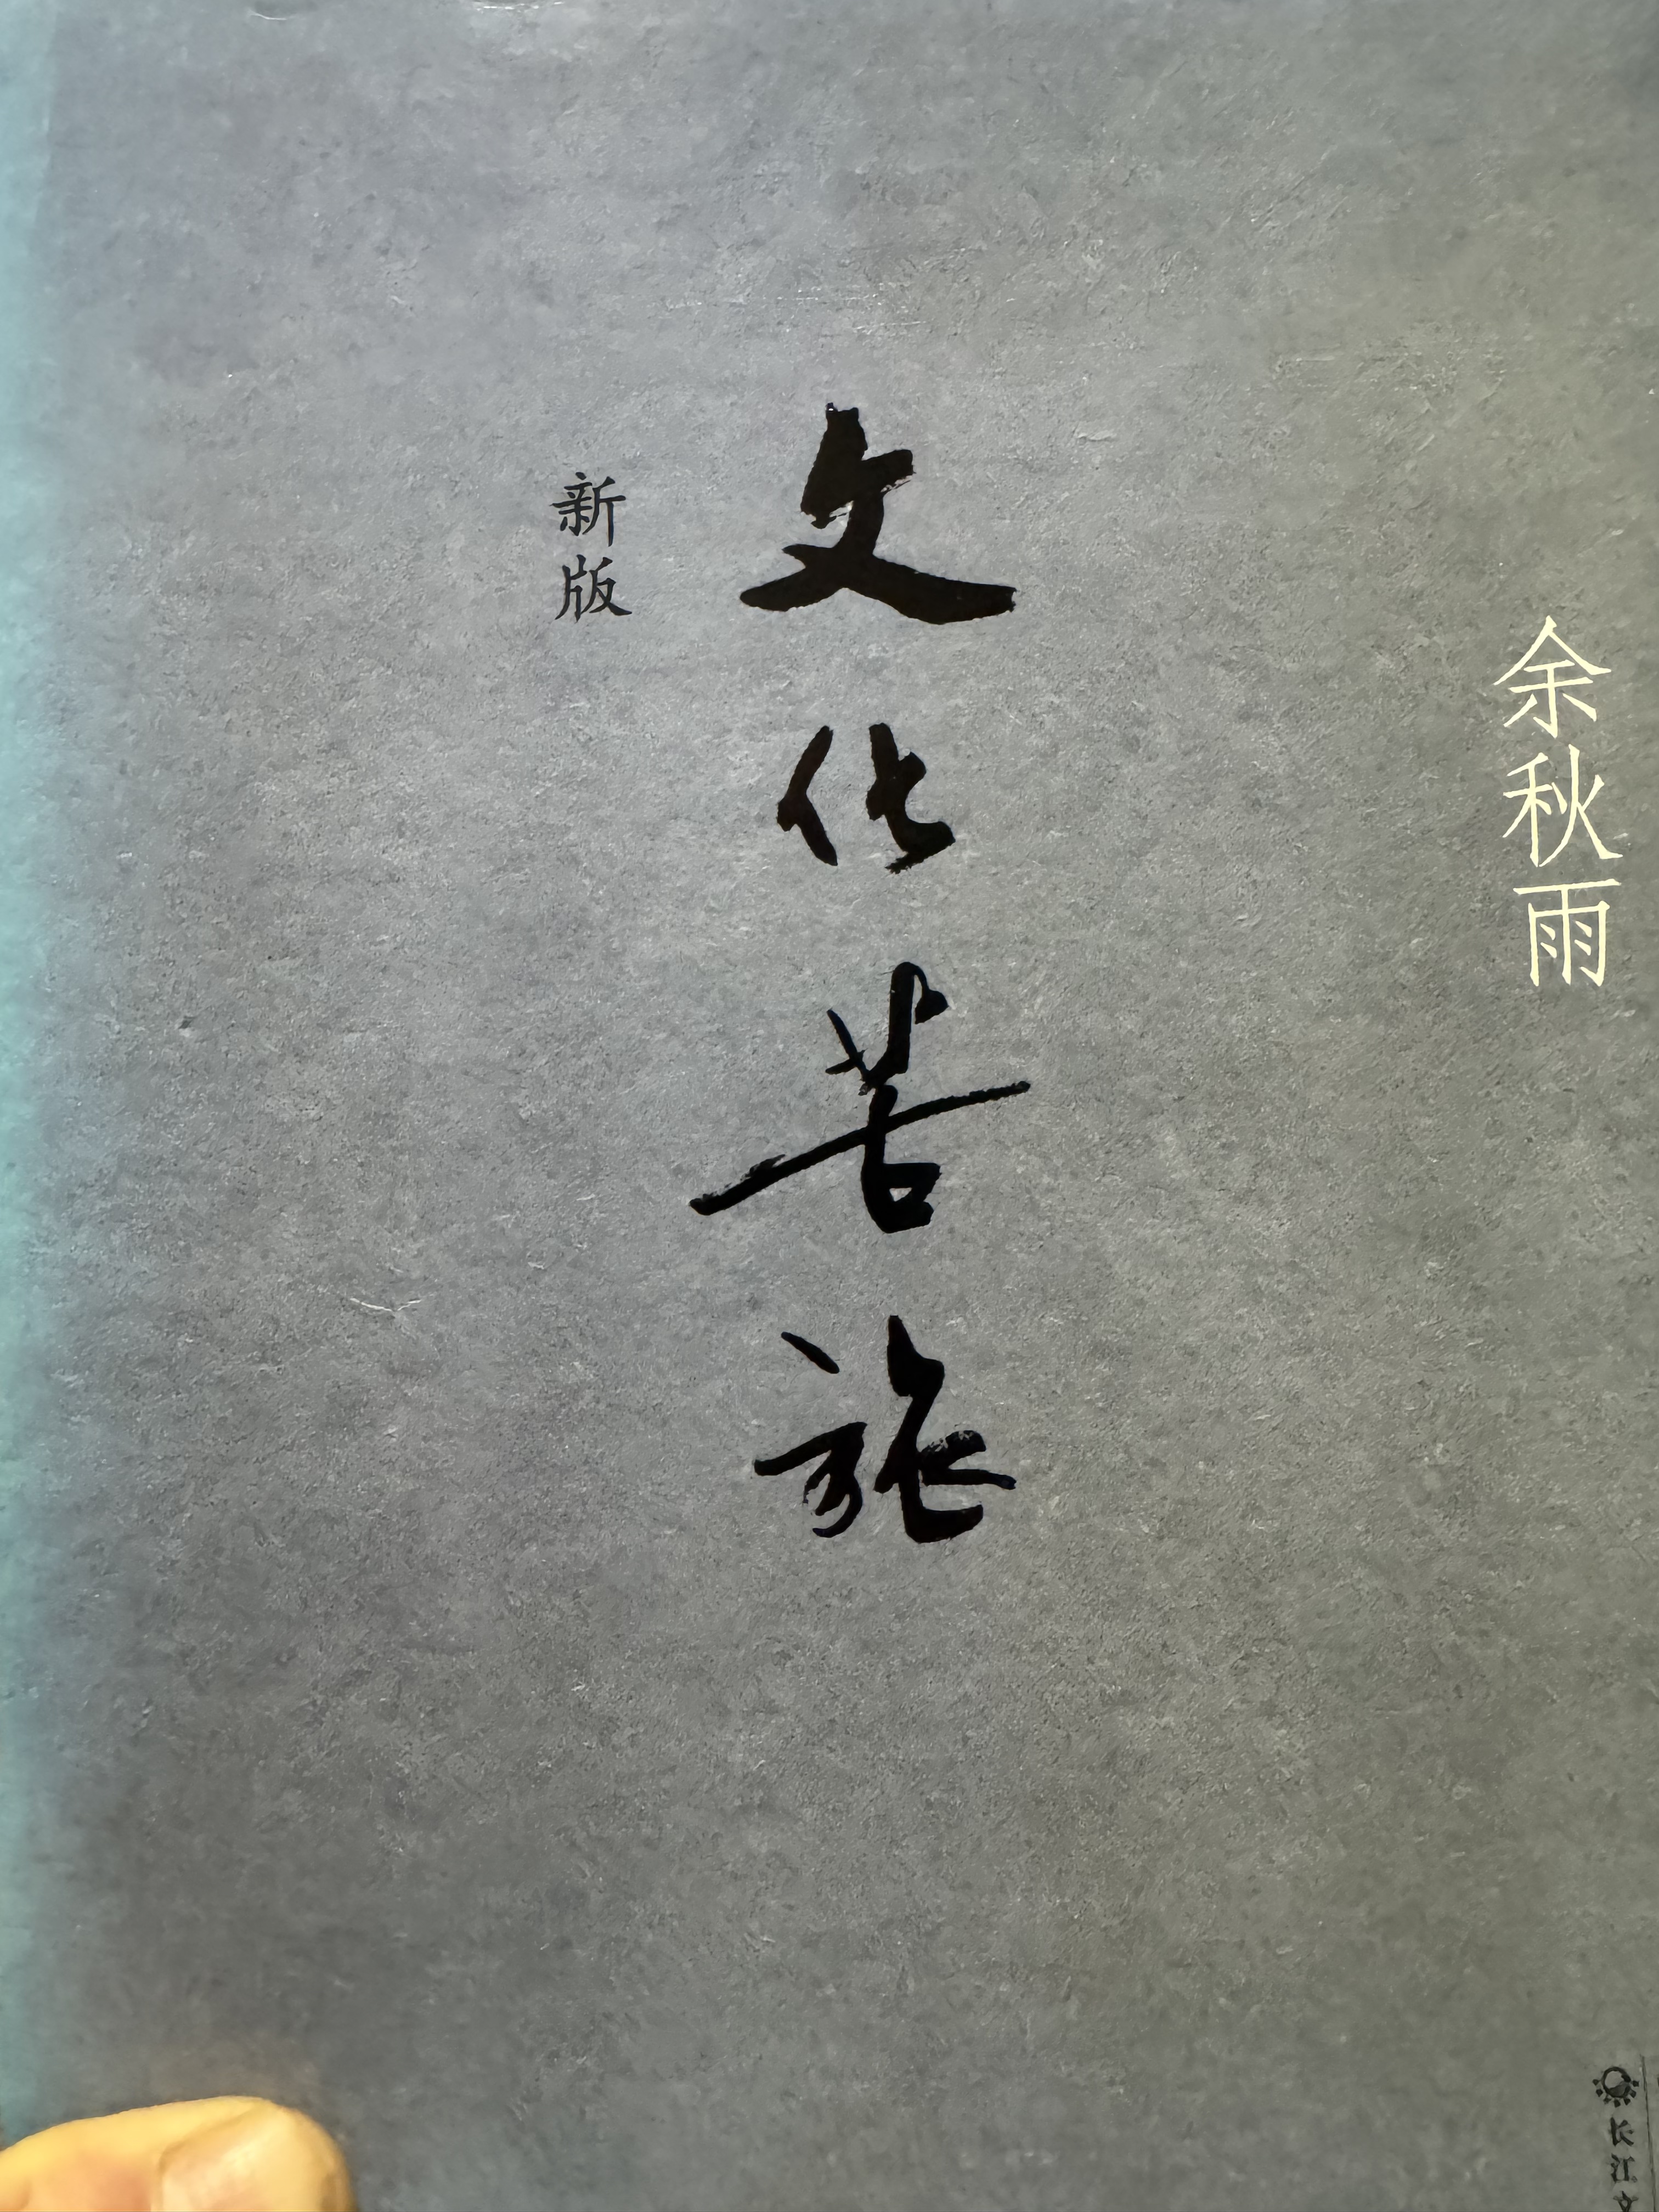 余秋雨
文化苦旅
新版
长江文